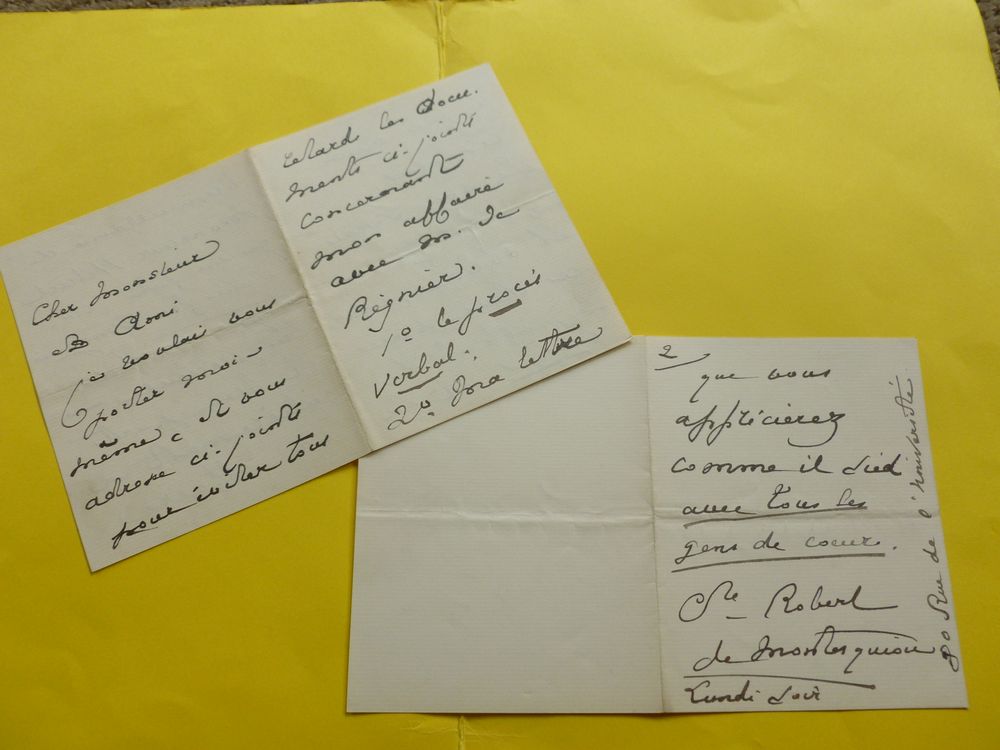 Cher Monsieur
et Ami
je voulais vous
porter moi-
même et vous
adresse ci-joints
pour éviter tous
retards les docu-
ments ci-joints
concernant
mon affaire
avec M. de
Régnier.
1º le procès
verbal.
2º ma lettre
2
que vous
apprécierez
comme il sied
avec tous les
gens de coeur.
Cte Robert
de Montesquiou
Lundi soir
90 Rue de l'Université